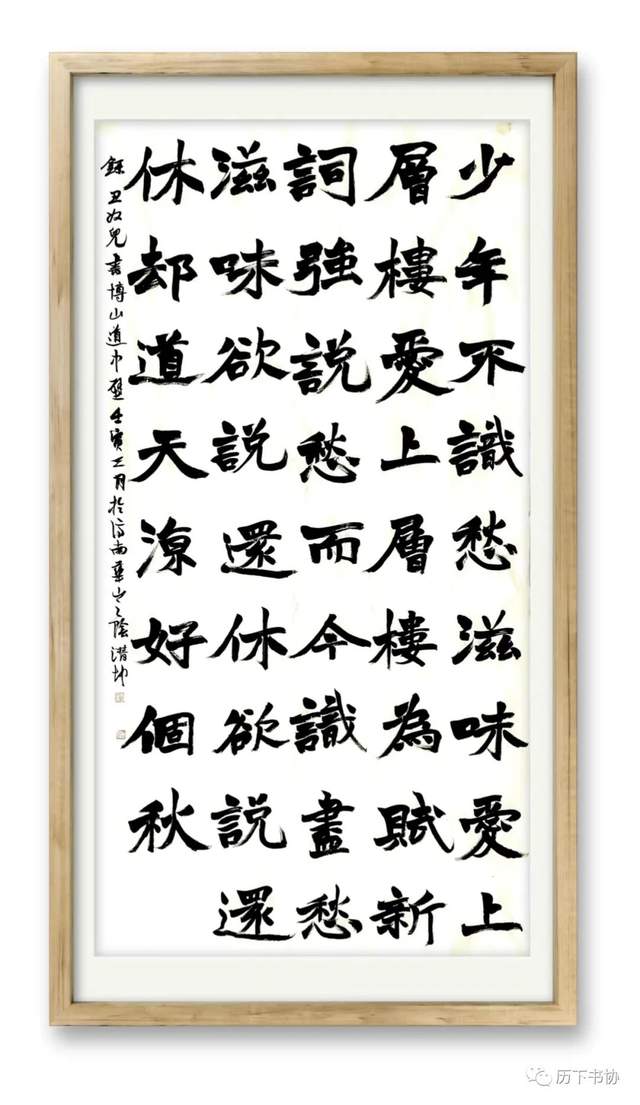 少年不識愁滋味愛上
層樓愛上層樓為賦新
詞強説愁而今識盡愁
滋味欲説還休欲説還
休却道天涼好個秋
錄丑奴兒書博山道中壁壬寅正月於濟南華山之陰潛坤
历下书协